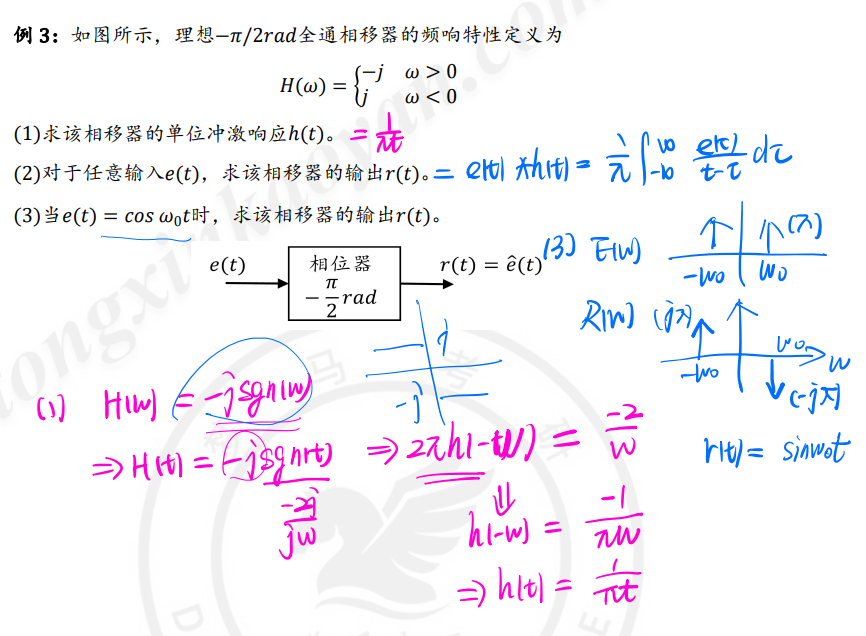 例 3：如图所示，理想−π/2rad全通相移器的频响特性定义为
H(ω) = {−j ω > 0
j ω < 0
(1)求该相移器的单位冲激响应h(t)。= 1/πt
(2)对于任意输入e(t)，求该相移器的输出r(t)。= e(t) * h(t) = 1/π ∫_{-∞}^{∞} e(τ)/(t-τ) dτ
(3)当e(t) = cos ω₀t时，求该相移器的输出r(t)。
e(t) 相位器 r(t) = ê(t)
−π/2 rad
(3) E(w) (π)
-w₀ w₀
R(w) (jπ) w₀ w
-w₀ (-jπ)
r(t) = sinw₀t
j
-j
(1) H(w) = -jsgn(w)
⇒ H(t) = -jsgn(t) ⇒ 2πh(-w) = -2/w
-2j/jw
⇓
h(-w) = -1/πw
⇒ h(t) = 1/πt